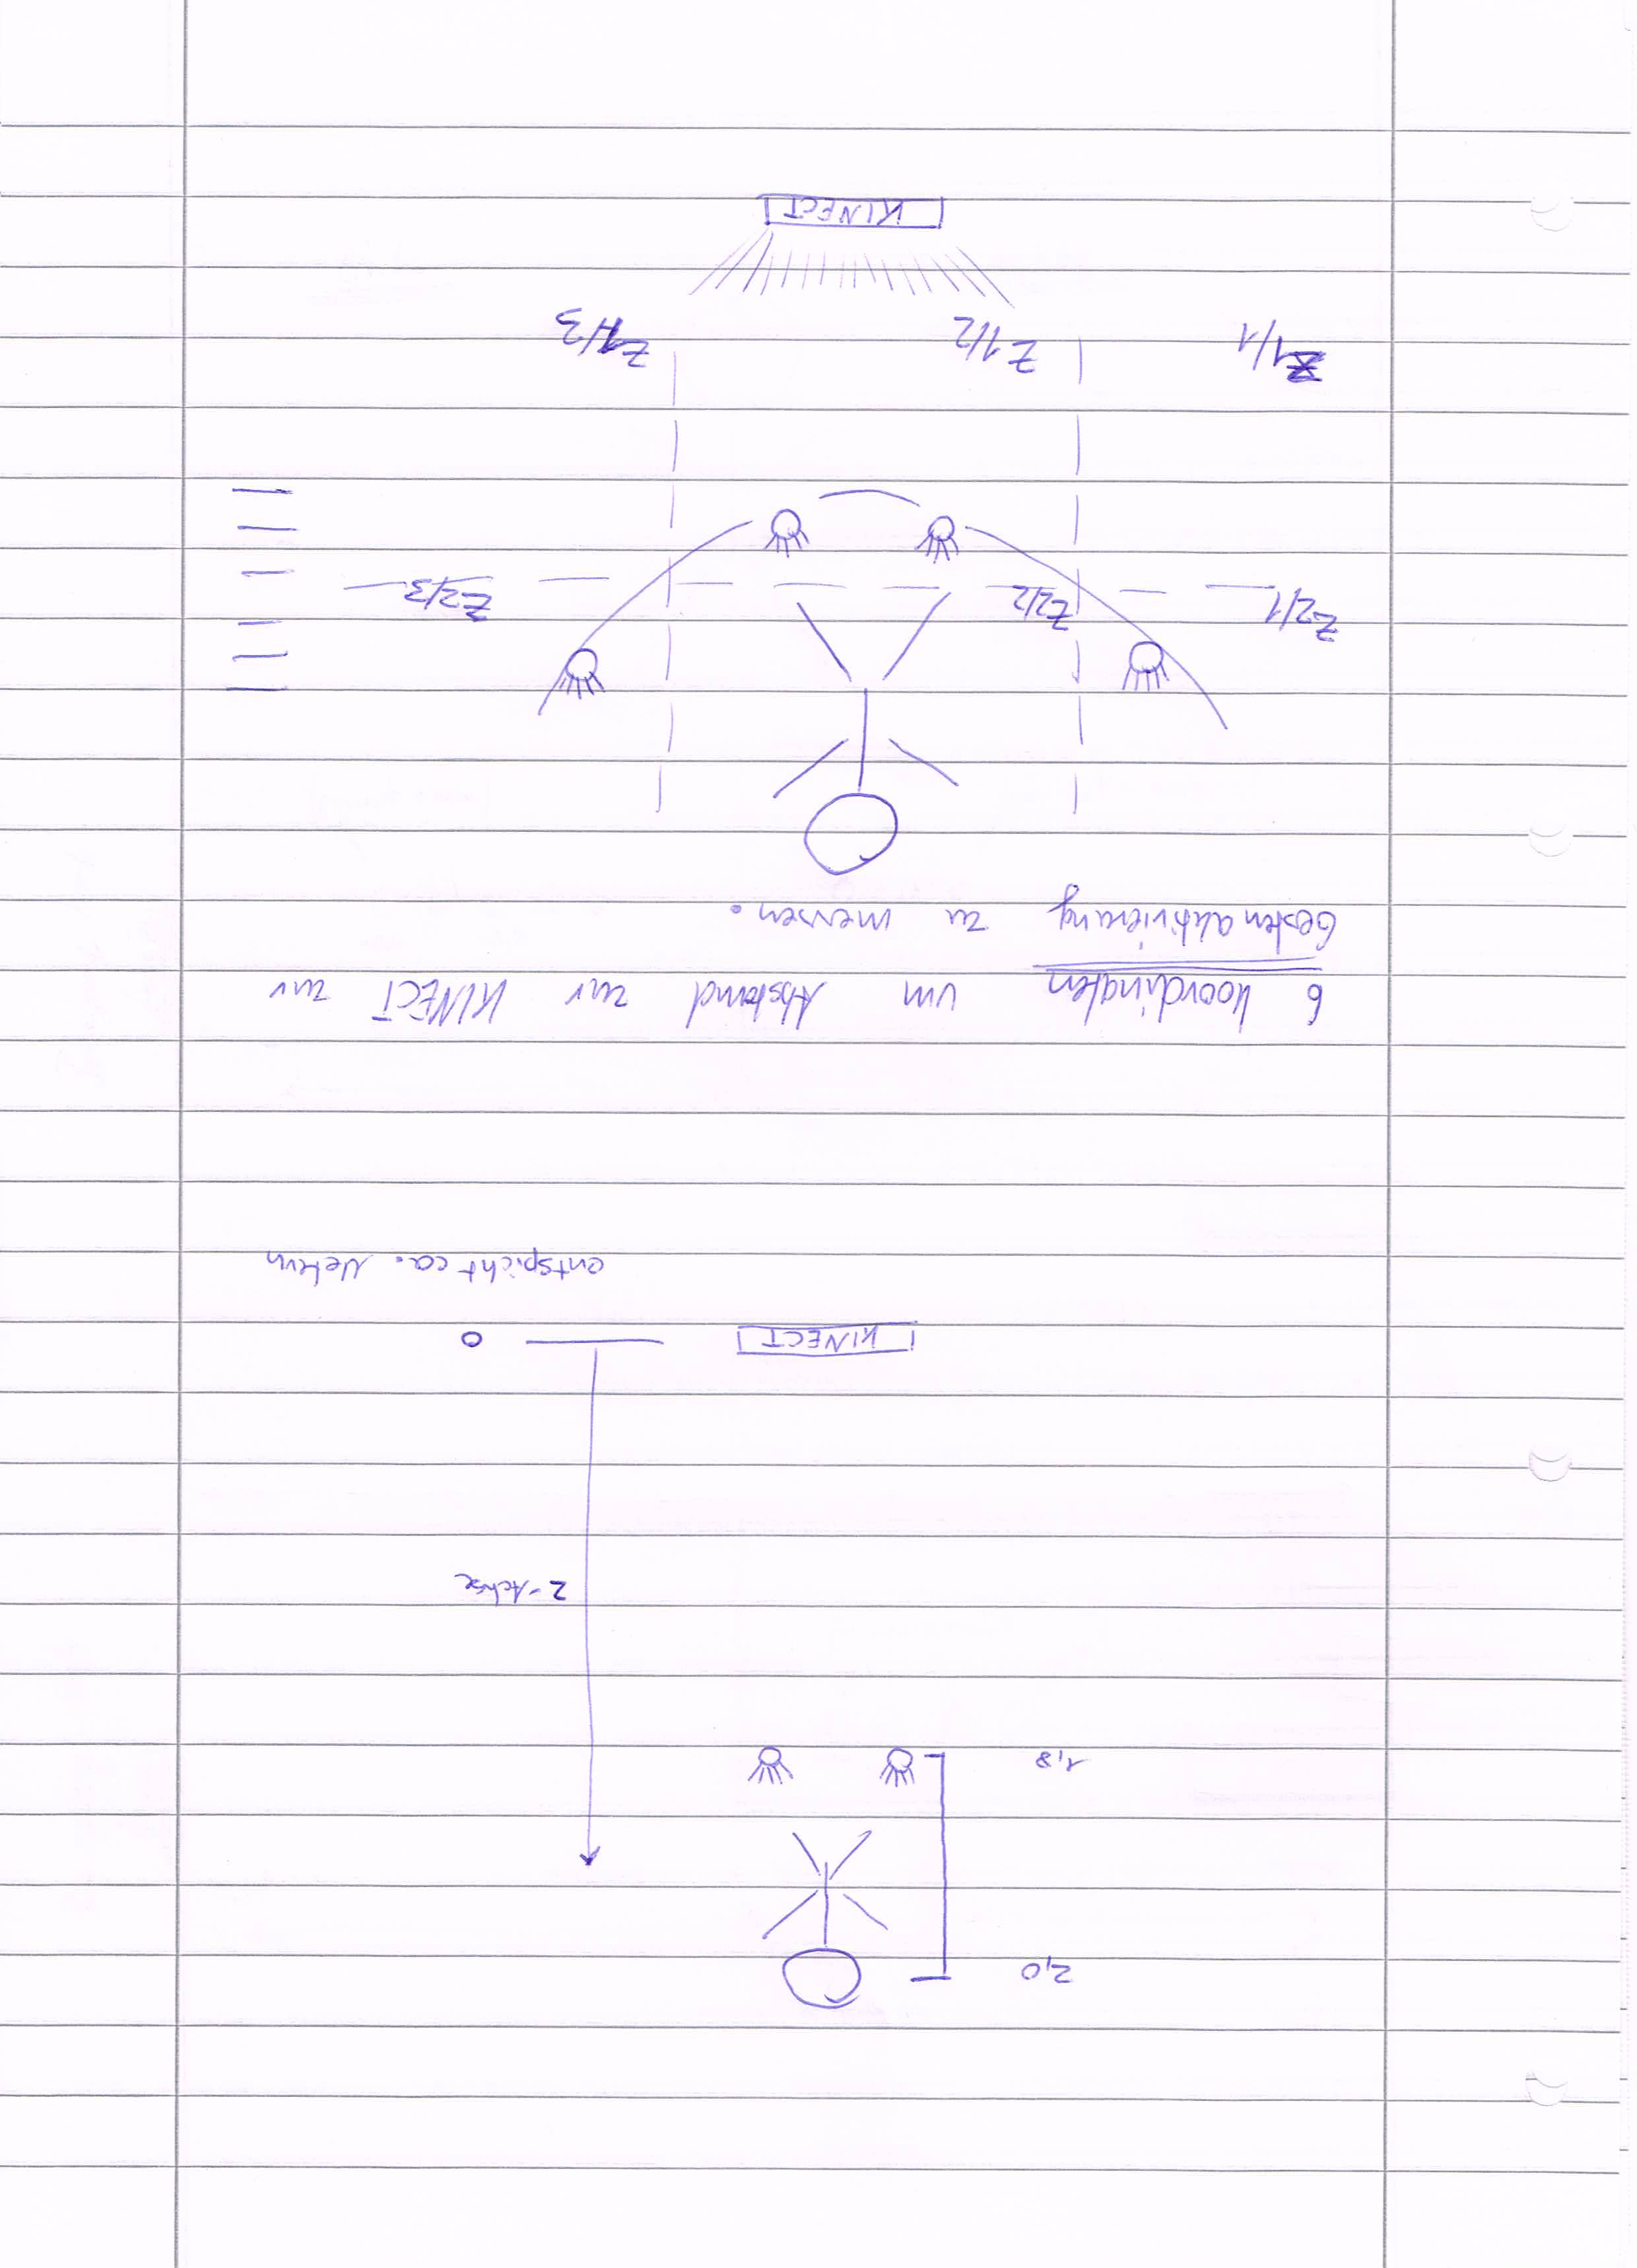 2,0
1,8
Z-Achse
KINECT 0
entspicht ca. Metern
6 Koordinaten um Abstand zur KINECT zur
Gestenaktivierung zu messen.
Z2/1 Z2/2 Z2/3
Z1/1 Z1/2 Z1/3
KINECT